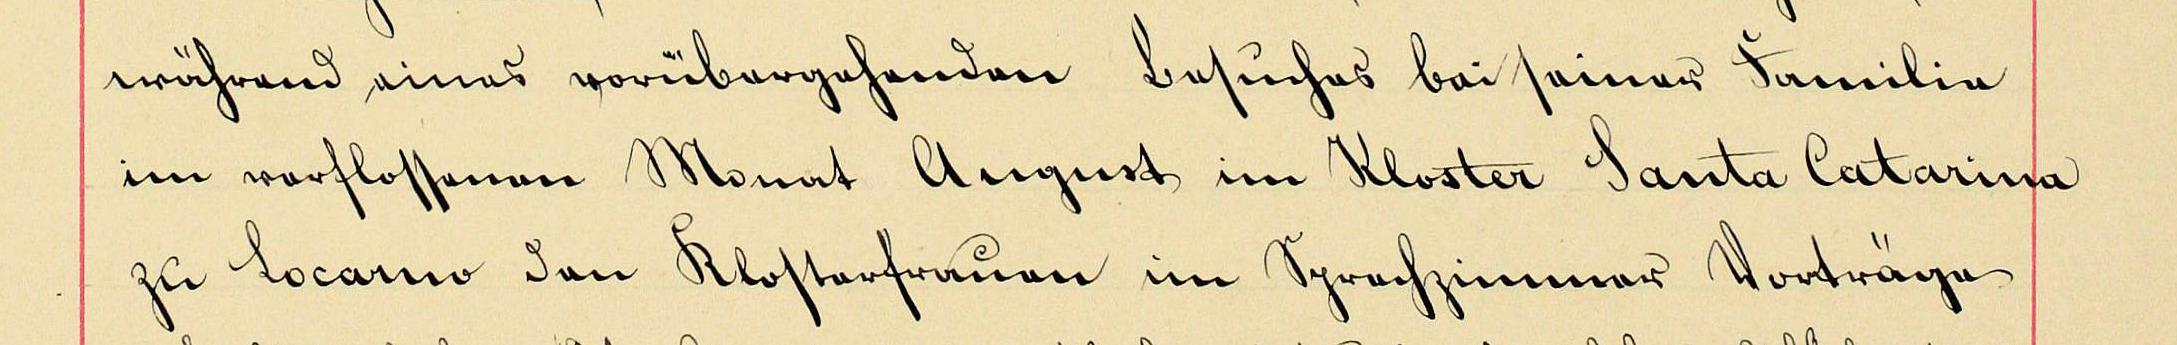 während eines vorübergehenden Besuches bei seiner Familie
im verflossenen Monat August im Kloster Santa Catarina
zu Locarno den Klosterfrauen im Sprechzimmer Vorträge